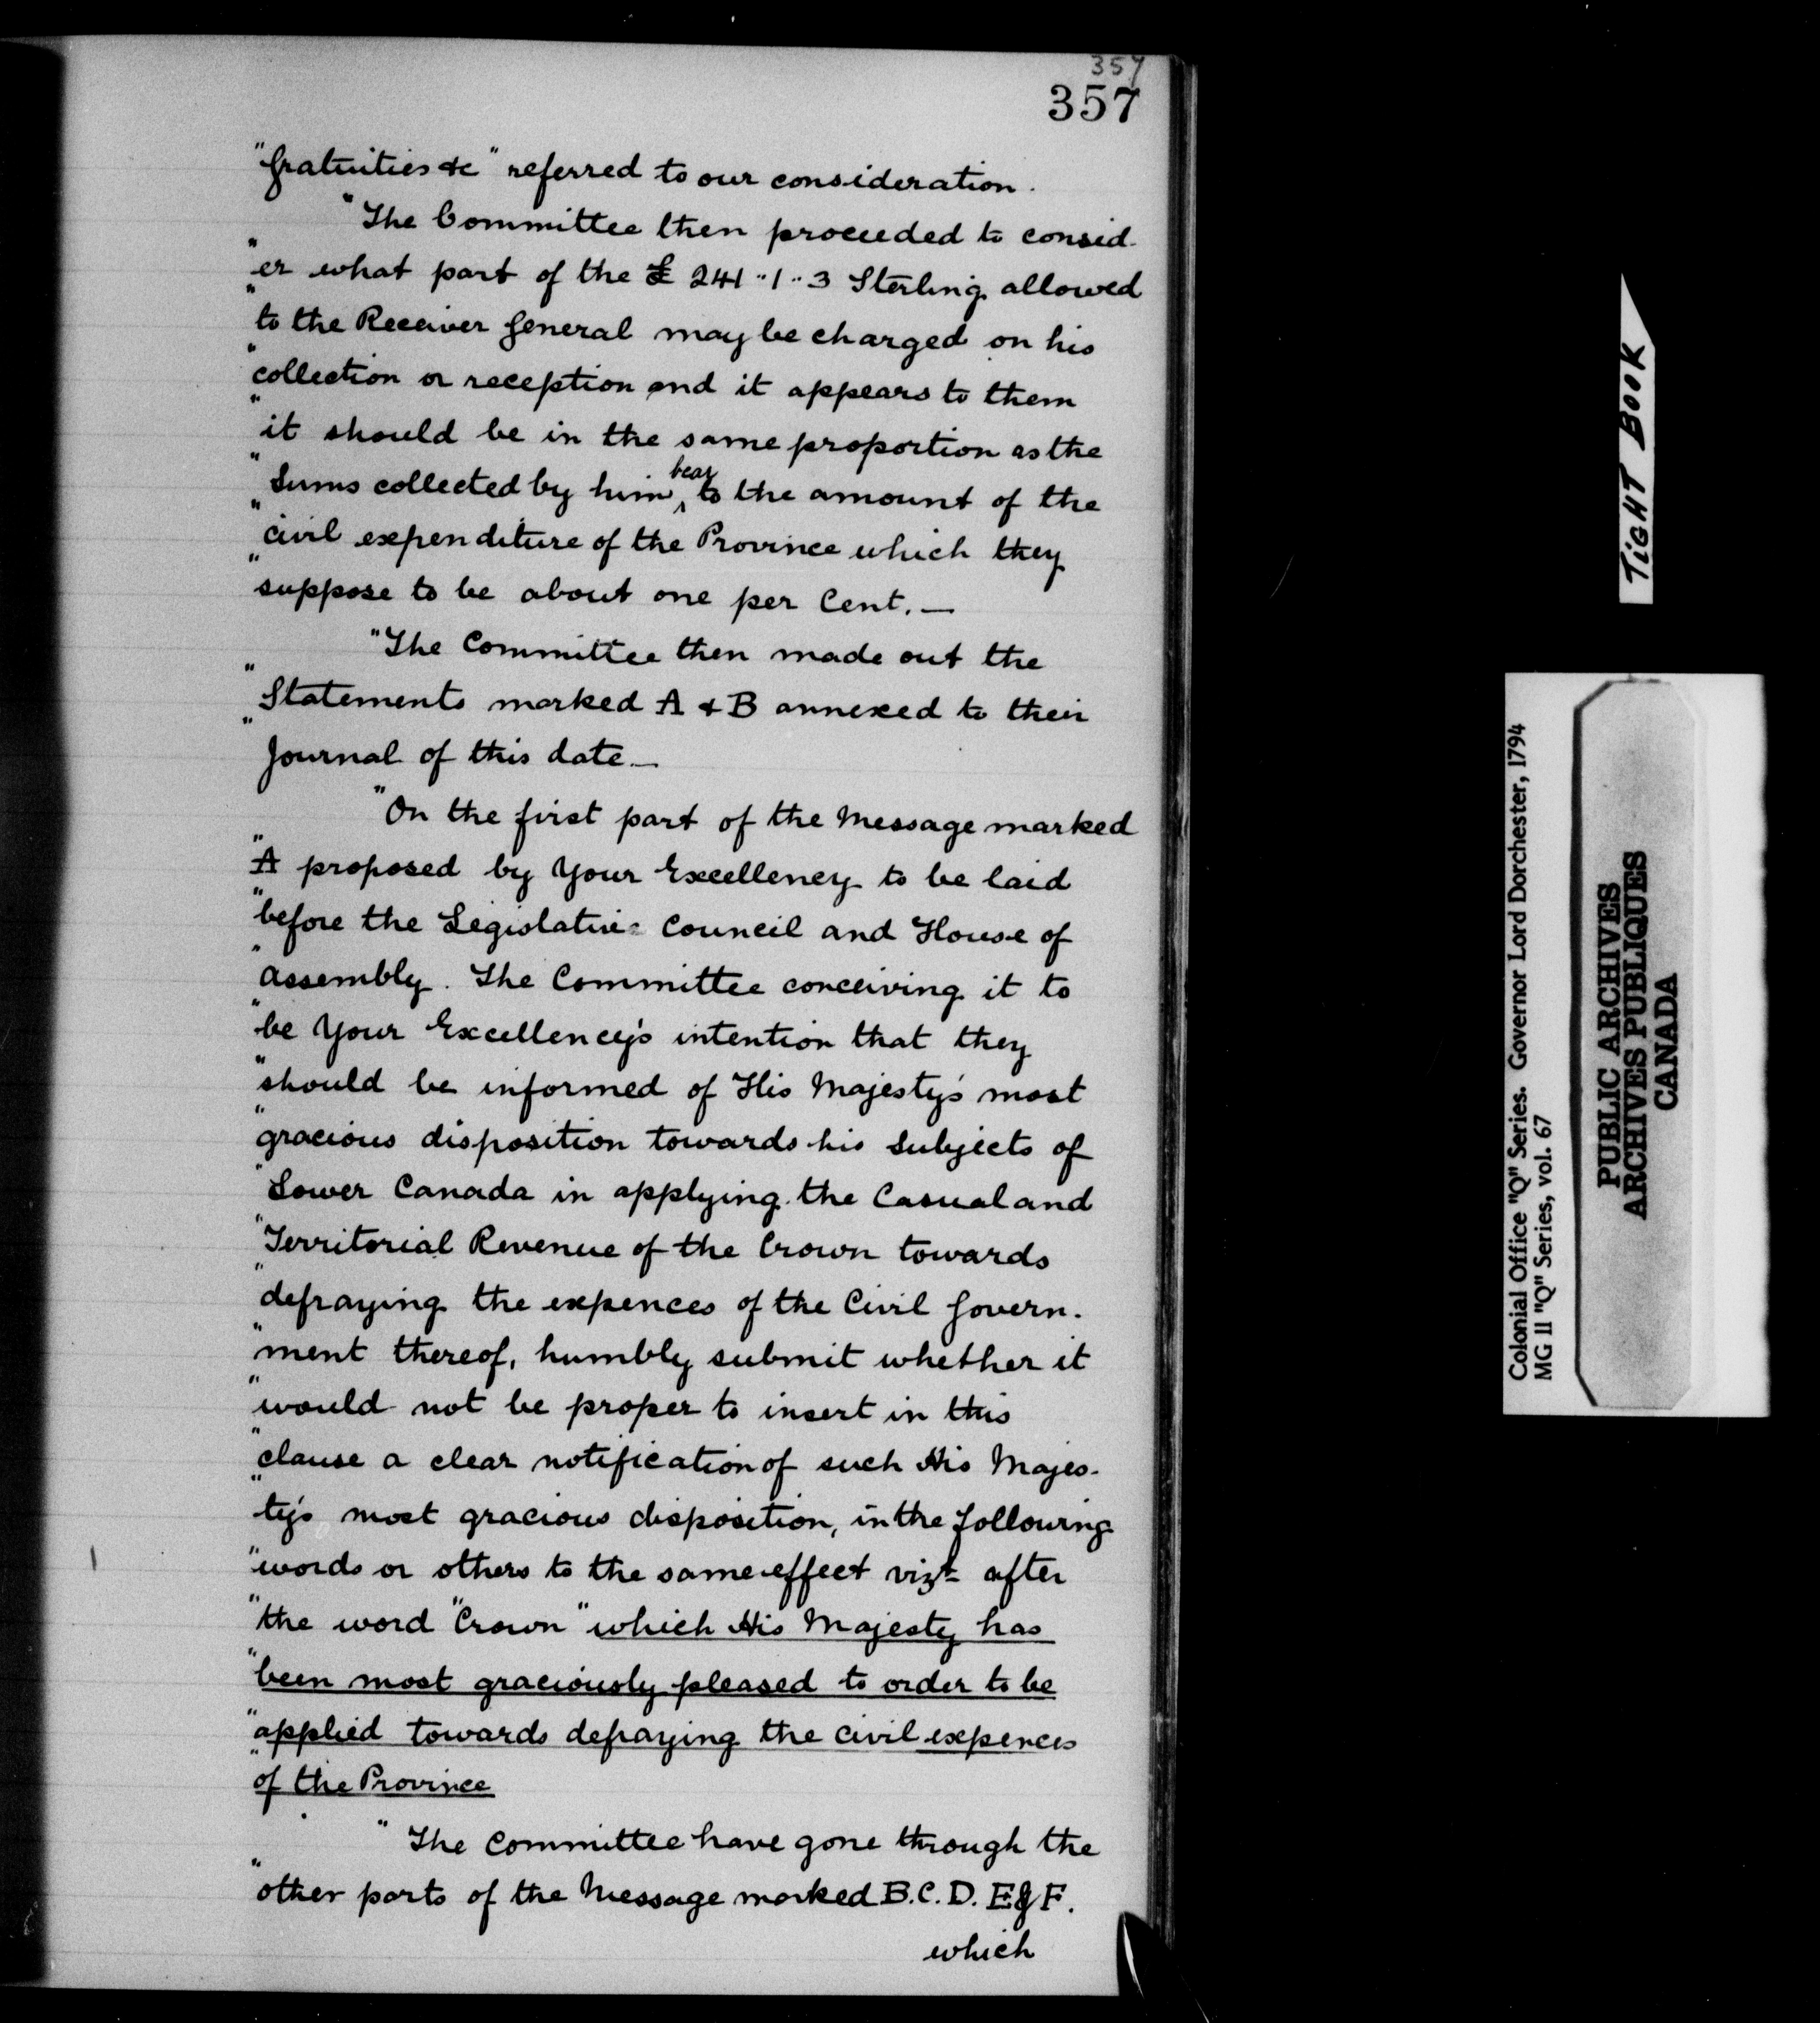 357
357
"Gratuities &c" referred to our consideration.
"The Committee then proceeded to consid-
"er what part of the £ 241 "1" 3 Sterling allowed
"to the Receiver General may be charged on his
"collection or reception and it appears to them
"it should be in the same proportion as the
"Sums collected by him ‸ bear to the amount of the
"civil expenditure of the Province which they
"suppose to be about one per Cent. —
"The Committee then made out the
"Statements marked A & B annexed to their
"Journal of this date —
"On the first part of the Message marked
"A proposed by Your Excellency to be laid
"before the Legislative Council and House of
"Assembly. The Committee conceiving it to
"be Your Excellency's intention that they
"should be informed of His Majesty's most
"gracious disposition towards his Subjects of
"Lower Canada in applying the Casual and
"Territorial Revenue of the Crown towards
"defraying the expences of the Civil Govern-
"ment thereof, humbly submit whether it
"would not be proper to insert in this
"clause a clear notification of such His Majes-
"ty's most gracious disposition, in the following
"words or others to the same effect vizt after
"the word "Crown" which His Majesty has
"been most graciously pleased to order to be
"applied towards defraying the civil expences
"of the Province
"The Committee have gone through the
"other parts of the Message marked B. C. D. E & F.
which
TIGHT BOOK
Colonial Office "Q" Series. Governor Lord Dorchester, 1794
MG 11 "Q" Series, vol. 67
PUBLIC ARCHIVES
ARCHIVES PUBLIQUES
CANADA